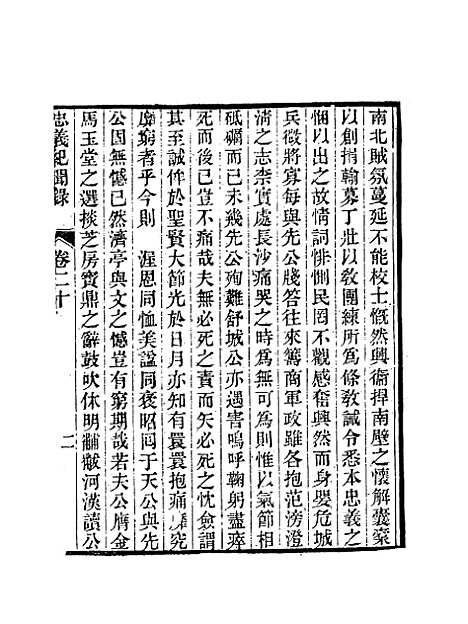 南北賊氛蔓延不能枝士慨然興衞捍南壁之懷解囊橐
以創捐輸募丁壯以敎團練所爲條敎誡令悉本忠義之
悃以出之故情詞悱惻民罔不觀感奮興然而身嬰危城
兵微將寡每與先公牋答往來籌商軍政雖各抱范滂澄
淸之志柰實處長沙痛哭之時爲無可爲則惟以氣節相
砥礪而已未幾先公殉難舒城公亦遇害嗚呼鞠躬盡瘁
死而後已豈不痛哉夫無必死之責而矢必死之忱僉謂
其至誠侔於聖賢大節光於日月亦知有睘睘抱痛孱究
靡窮者乎今則　渥恩同恤美諡同褒昭囘于天公與先
公固無憾已然濟亭與文之憾豈有窮期哉若夫公膺金
馬玉堂之選掞芝房寶鼎之辭鼓吹休明黼黻河漢讀公
忠義紀聞錄
卷二十
二